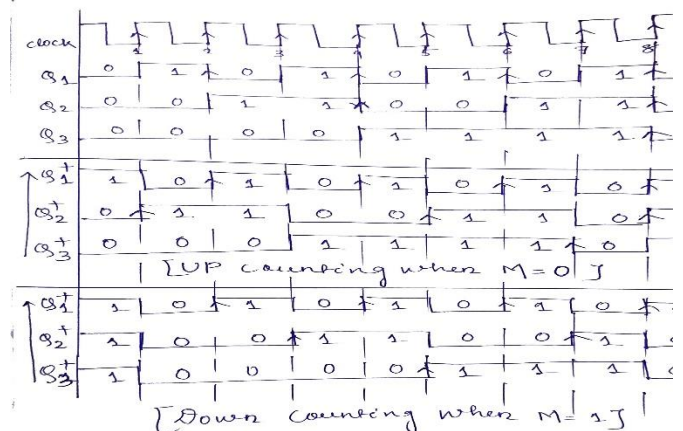 clock 1 2 3 4 5 6 7 8
Q1 0 1 0 1 0 1 0 1
Q2 0 0 1 1 0 0 1 1
Q3 0 0 0 0 1 1 1 1
Q1+ 1 0 1 0 1 0 1 0
Q2+ 0 1 1 0 0 1 1 0
Q3+ 0 0 0 1 1 1 1 0
[UP counting when M=0]
Q1+ 1 0 1 0 1 0 1 0
Q2+ 1 0 0 1 1 0 0 1
Q3+ 1 0 0 0 0 1 1 1
[Down counting when M=1]